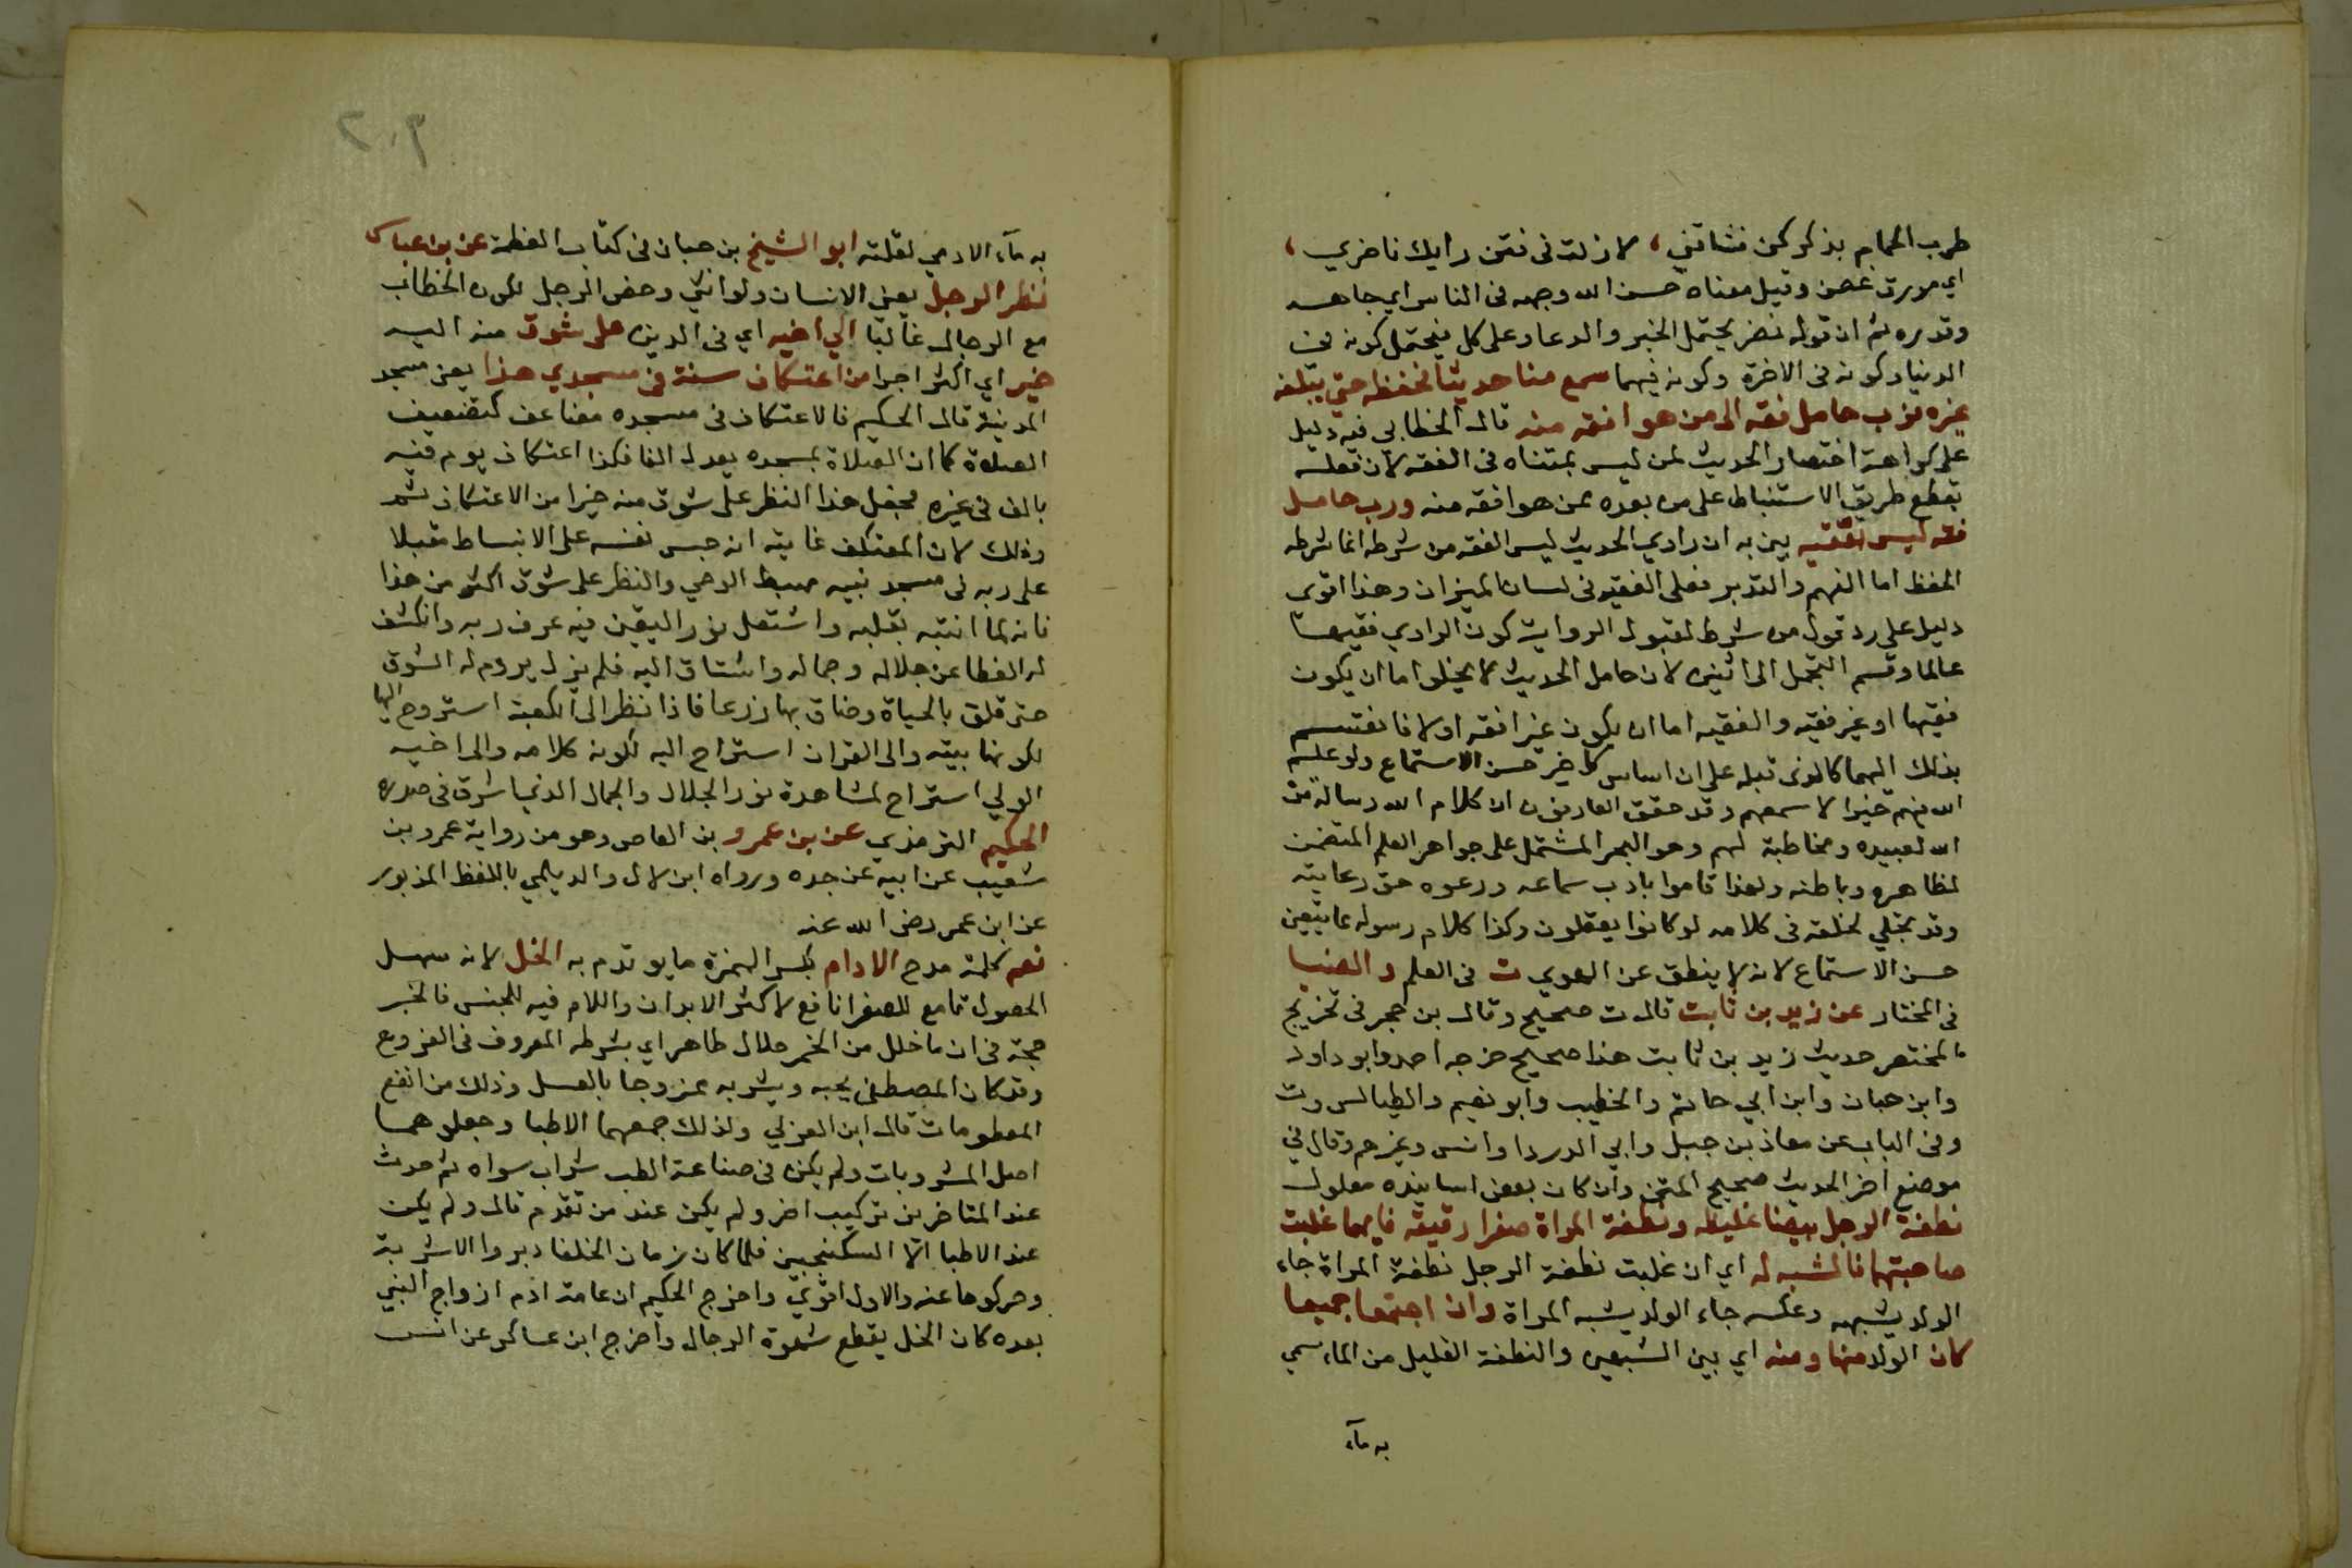 طرب الحمام بذكركن فشاقني، لا زلت في فنن وايك ناضري،
اي مورق غصن وقيل معناه حسن الله وجهه في الناس اي جاهه
وقدره ثم ان قوله نضر يحتمل الخبر والدعاء وعلى كل فيحتمل كونه في
الدنيا وكونه في الاخرة وكونه فيهما سمع منا حديثا فحفظه حتى يبلغه
غيره فرب حامل فقه الى من هو افقه منه قال الخطابي فيه دليل
على كراهة اختصار الحديث لمن ليس بمتناه في الفقه لان فعله
يقطع طريق الاستنباط على من بعده ممن هو افقه منه ورب حامل
فقه ليس بفقيه بين به ان راوي الحديث ليس الفقه من شرطه انما شرطه
الحفظ اما الفهم والتدبر فعلى الفقيه في لسان الميزان وهذا اقوى
دليل على رد قول من شرط لقبول الرواية كون الراوي فقيها
عالما وقسم التحمل الى اثنين لان حامل الحديث لا يخلو اما ان يكون
فقيها او غير فقيه والفقيه اما ان يكون غير افقه اولا فانقسم
بذلك اليهما كالذي قبله على ان اساس كل خير حسن الاستماع ولو علم
الله فيهم خيرا لاسمعهم وقد حقق العارفون ان كلام الله رسالة من
الله لعبيده ومخاطبة لهم وهو البحر المشتمل على جواهر العلم المتضمن
لظاهره وباطنه ولهذا قاموا باداب سماعه ورعوه حق رعايته
وقد تجلي لخلقه في كلامه لو كانوا يعقلون وكذا كلام رسوله مما يتعين
حسن الاستماع لانه لا ينطق عن الهوى ت في العلم والضيا
في المختار عن زيد بن ثابت قال ت صحيح وقال بن حجر في تخريج
المختصر حديث زيد بن ثابت هذا صحيح خرجه احمد وابو داود
وابن حبان وابن ابي حاتم والخطيب وابو نعيم والطيالسي وت
وفي الباب عن معاذ بن جبل وابي الدردا وانس وغيرهم وقال في
موضع اخر الحديث صحيح المتن وان كان بعض اسانيده معلول
نطفة الرجل بيضا غليظه ونطفة المراة صفرا رقيقه فايهما غلبت
صاحبتها فالشبه له اي ان غلبت نطفة الرجل نطفة المراة جاء
الولد يشبهه وعكسه جاء الولد يشبه المراة وان اجتمعا جميعا
كان الولد منها ومنه اي بين الشبهين والنطفة القليل من الماء سمي
به ماء
٢٠٩
به ماء الادمي لقلته ابو الشيخ بن حبان في كتاب العظمة عن بن عباس
نظر الرجل يعني الانسان ولو انثى وخص الرجل لكون الخطاب
مع الرجال غالبا الي اخيه اي في الدين على شوق منه اليه
خير اي اكثر اجرا من اعتكاف سنة في مسجدي هذا يعني مسجد
المدينة قال الحكيم فالاعتكاف في مسجده مضاعف كتضعيف
الصلاة كما ان الصلاة بمسجده يعدل الفا فكذا اعتكاف يوم فيه
بالف في غيره فجعل هذا النظر على شوق منه خيرا من الاعتكاف ثم
وذلك لان المعتكف غايته ان حبس نفسه على الانبساط مقبلا
على ربه في مسجد نبيه مهبط الوحي والنظر على شوق اكثر من هذا
فانه لما انتبه بقلبه واشتعل نور اليقين فيه عرف ربه وانكشف
له الغطا عن جلاله وجماله واشتاق اليه فلم يزل يروم له الشوق
حتى قلق بالحياة وضاق بها ذرعا فاذا نظر الى الكعبة استروح اليها
لكونها بيته والى القران استراح اليه لكونه كلامه والى اخيه
الولي استراح لمشاهدة نور الجلال والجمال الذي اشرق في صدره
الحكيم الترمذي عن بن عمرو بن العاص وهو من رواية عمرو بن
شعيب عن ابيه عن جده ورواه ابن لال والديلمي باللفظ المذبور
عن ابن عمر رضي الله عنه
نعم كلمة مدح الادام بكسر الهمزة ما يوتدم به الخل لانه سهل
الحصول قامع للصفرا نافع لاكثر الابدان واللام فيه للجنس فالخبر
حجة في ان ما خلل من الخمر حلال طاهر اي بشرطه المعروف في الفروع
وقد كان المصطفى يحبه ويشربه ممزوجا بالعسل وذلك من انفع
المطعومات قال ابن العربي ولذلك جمعهما الاطبا وجعلوهما
اصل المشروبات ولم يكن في صناعة الطب شراب سواه ثم حدث
عند المتاخرين تركيب اخر ولم يكن عند من تقدم قال ولم يكن
عند الاطبا الا السكنجبين فلما كان زمان الخلفا دبروا الاشربة
وحركوها عنه والاول اقوي واخرج الحكيم ان عامة ادم ازواج النبي
بعده كان الخل يقطع شهوة الرجال واخرج ابن عساكر عن انس